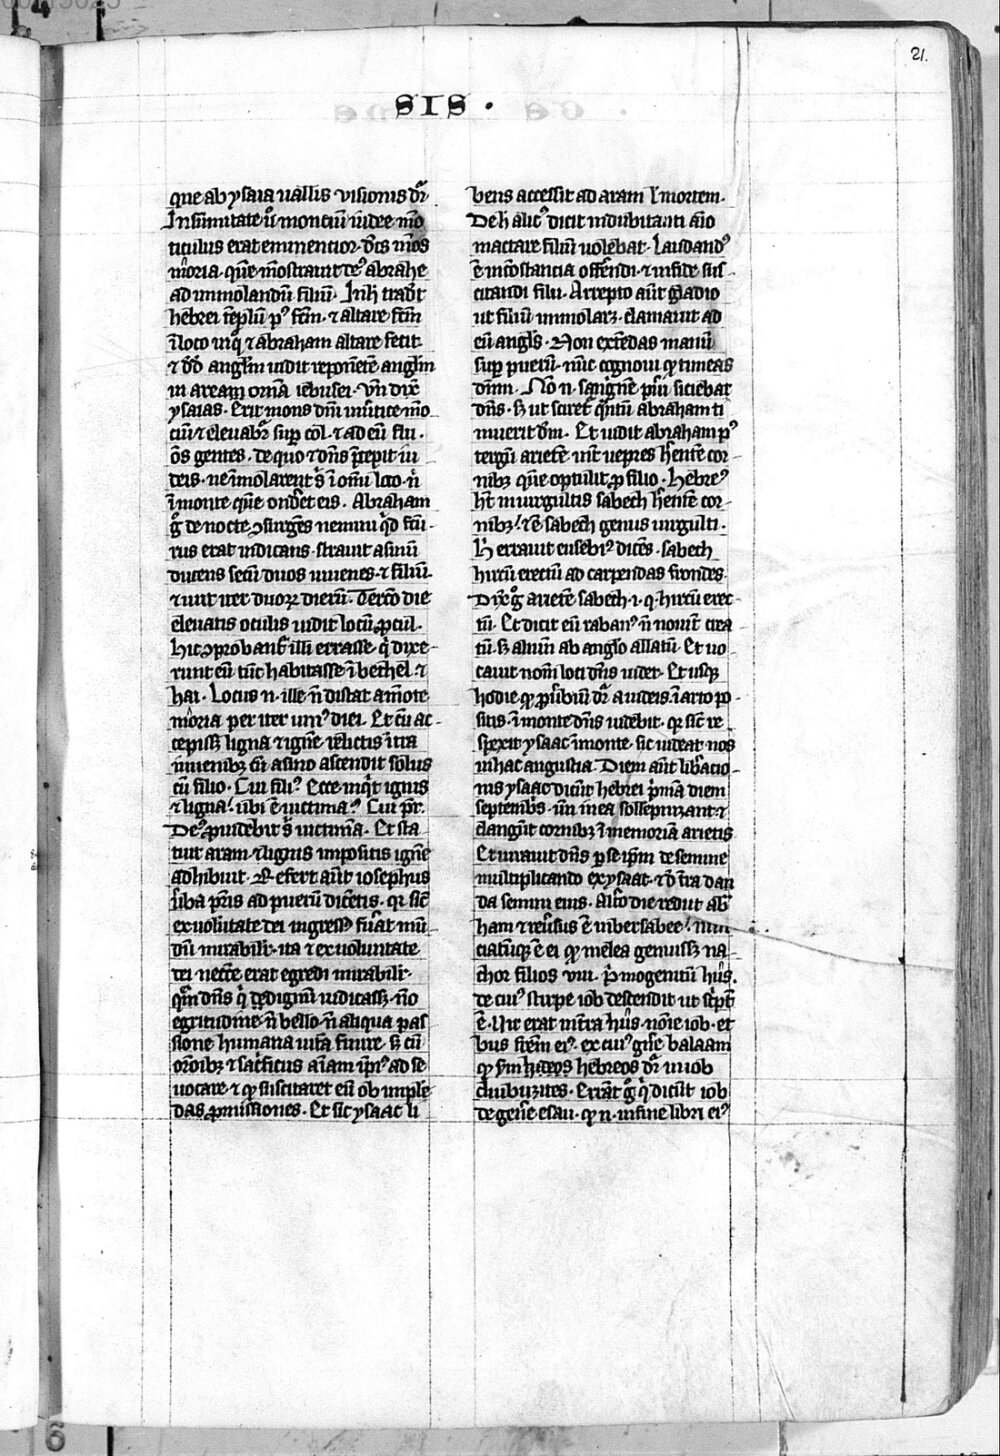 21.
SIS ·
que ab ysaia uallis visionis dr̄
In sūmitate u̾ montiū iudee mō
ticulus erat eminentior · dc̄s mōs
mōria · quē mōstrauit deꝰ abrahe
ad immolandū filiū · In h̄ tradūt
hebrei tēplū pꝰ fcm̄ · ⁊ altare fcm̄
ī loco ⁊ abraham altare fecit
⁊ dd̄ angl̄m uidit reponētē
in aream orna iebusei · vn̄ dix̄
ysaias · Erit mons dn̄i in u̾tice mō
ciū ⁊ eleuabr̄ sup col̄ · ⁊ ad eū flu ·
ōs gentes · de quo ⁊ dn̄s p̄cepit iu
deis · ne īmolarent s̄ ī omī loco · n̄
ī monte quē ondēt eis · Abraham
g̊ de nocte ꝯsurgēs nemini qd̄ fcū ·
rus erat indicans · strauit asinū
ducens secū duos iuuenes · ⁊ filiū ·
⁊ iuit iter duoꝝ dierū · Tercō die
eleuatis oculis uidit locū ꝓcul ·
hic ꝯprobant̄ illi errasse · q̄ dixe ·
runt eū tūc habitasse ī bethel · ⁊
hai · Locus n · ille n̄ distat a mōte
mōria per iter uniꝰ diei · Et cū ac ·
cepissꝫ ligna ⁊ ignē · relictis ī ita
iuuenibꝫ cū asino ascendit solus
cū filio · Cui filiꝰ · Ecce inq̄t ignis
⁊ ligna · ubi ē uictima · Cui pr̄ ·
Deꝰ ꝓuidebit s̄ uictimā · Et sta
tuit aram · ⁊ lignis impositis ignē
adhibuit · Refert aūt iosephus
u̾ba pr̄is ad puerū dicētis · qr sic̄
ex uolūtate dei ingressꝰ fu̾at mū
dū mirabilr̄ · ita ⁊ ex uoluntate
dei necc̄e erat egredi mirabilr̄ ·
qm̄ dn̄s iudicassꝫ · nō
egritudine · n̄ bello · n̄ aliqua pas
sione humana uitā finire · s̄ cū
orōnibꝫ ⁊ sac̾ficiis aīam ip̄iꝰ ad se
uocare · ⁊ qꝫ suscitaret eū ob imple
das ꝓmissiones · Et sic ysaac li
bens accessit ad aram ⁊ mortem ·
De h̄ alit̾ dicit indubitanti aīo
mactare filiū uolebat · Laudandꝰ
ē incōstancia offerendi · ⁊ in fide sus ·
citandi filii · Arrepto aūt gladio
ut filiū immolarꝫ · clamauit ad
eū angl̄s · Non extēdas manū
sup puerū · nūc cognoui qꝫ timeas
dn̄m · Nō n · sanguinē pu̾i siciebat
dn̄s · s̄ ut scirēt q̄ntū abraham ti
muerit dm̄ · Et uidit abraham pꝰ
tergū arietē int̾ uepres h̾entē cor ·
nibꝫ quē optulit ꝓ filio · Hebreꝰ
ht̄ in uirgultis sabech h̾entē cor ·
nibꝫ · ⁊ ē sabech genus uirgulti ·
H̄ errauit eusebiꝰ dicēs · sabech
hircū erectū ad carpendas frondes ·
Dix̄ g̊ arietē sabech · i · q · hircū erec ·
tū · Et dicit eū rabanꝰ n̄ nouit̾ crea
tū · s̄ aliūn ab anglo allatū · Et uo
cauit nom̄ loci dn̄s uidet · Et usqꝫ
hodie qꝫ pu̾biū dr̄ a iudeis · ī arto po ·
sitis · ī monte dn̄s uidebit · qr sic̄ re
spexit ysaac ī monte · sic uideat nos
in hac angustia · Diem aūt lib̾acio ·
nis ysaac dicūt hebrei p̾mā diem
septembris · un̄ in ea sollepnizant · ⁊
clangūt cornibꝫ ī memoriā arietis
Et iurauit dn̄s p se ip̄m de semine
multiplicando ex ysaac · ⁊ de t̾ra dan
da semini eius · Alio die rediit ab̄
ham ⁊ reu̾sus ē in bersabee · nun
ciatūqꝫ ē ei qꝫ melca genuissꝫ na ·
chor filios viii · p̾mogenitū hus ·
de cuiꝰ stirpe iob descendit ut sc̾ptū
ē · Uir erat in t̾ra hus · noīe iob · et
bus frēm eiꝰ · ex cuiꝰ gn̄e balaam
qꝫ sm̄ hebreos dr̄ in iob
eliubuzites · Errāt g̊ q̄ dicūt iob
de gen̄e esau · qꝫ n · in fine libri eiꝰ